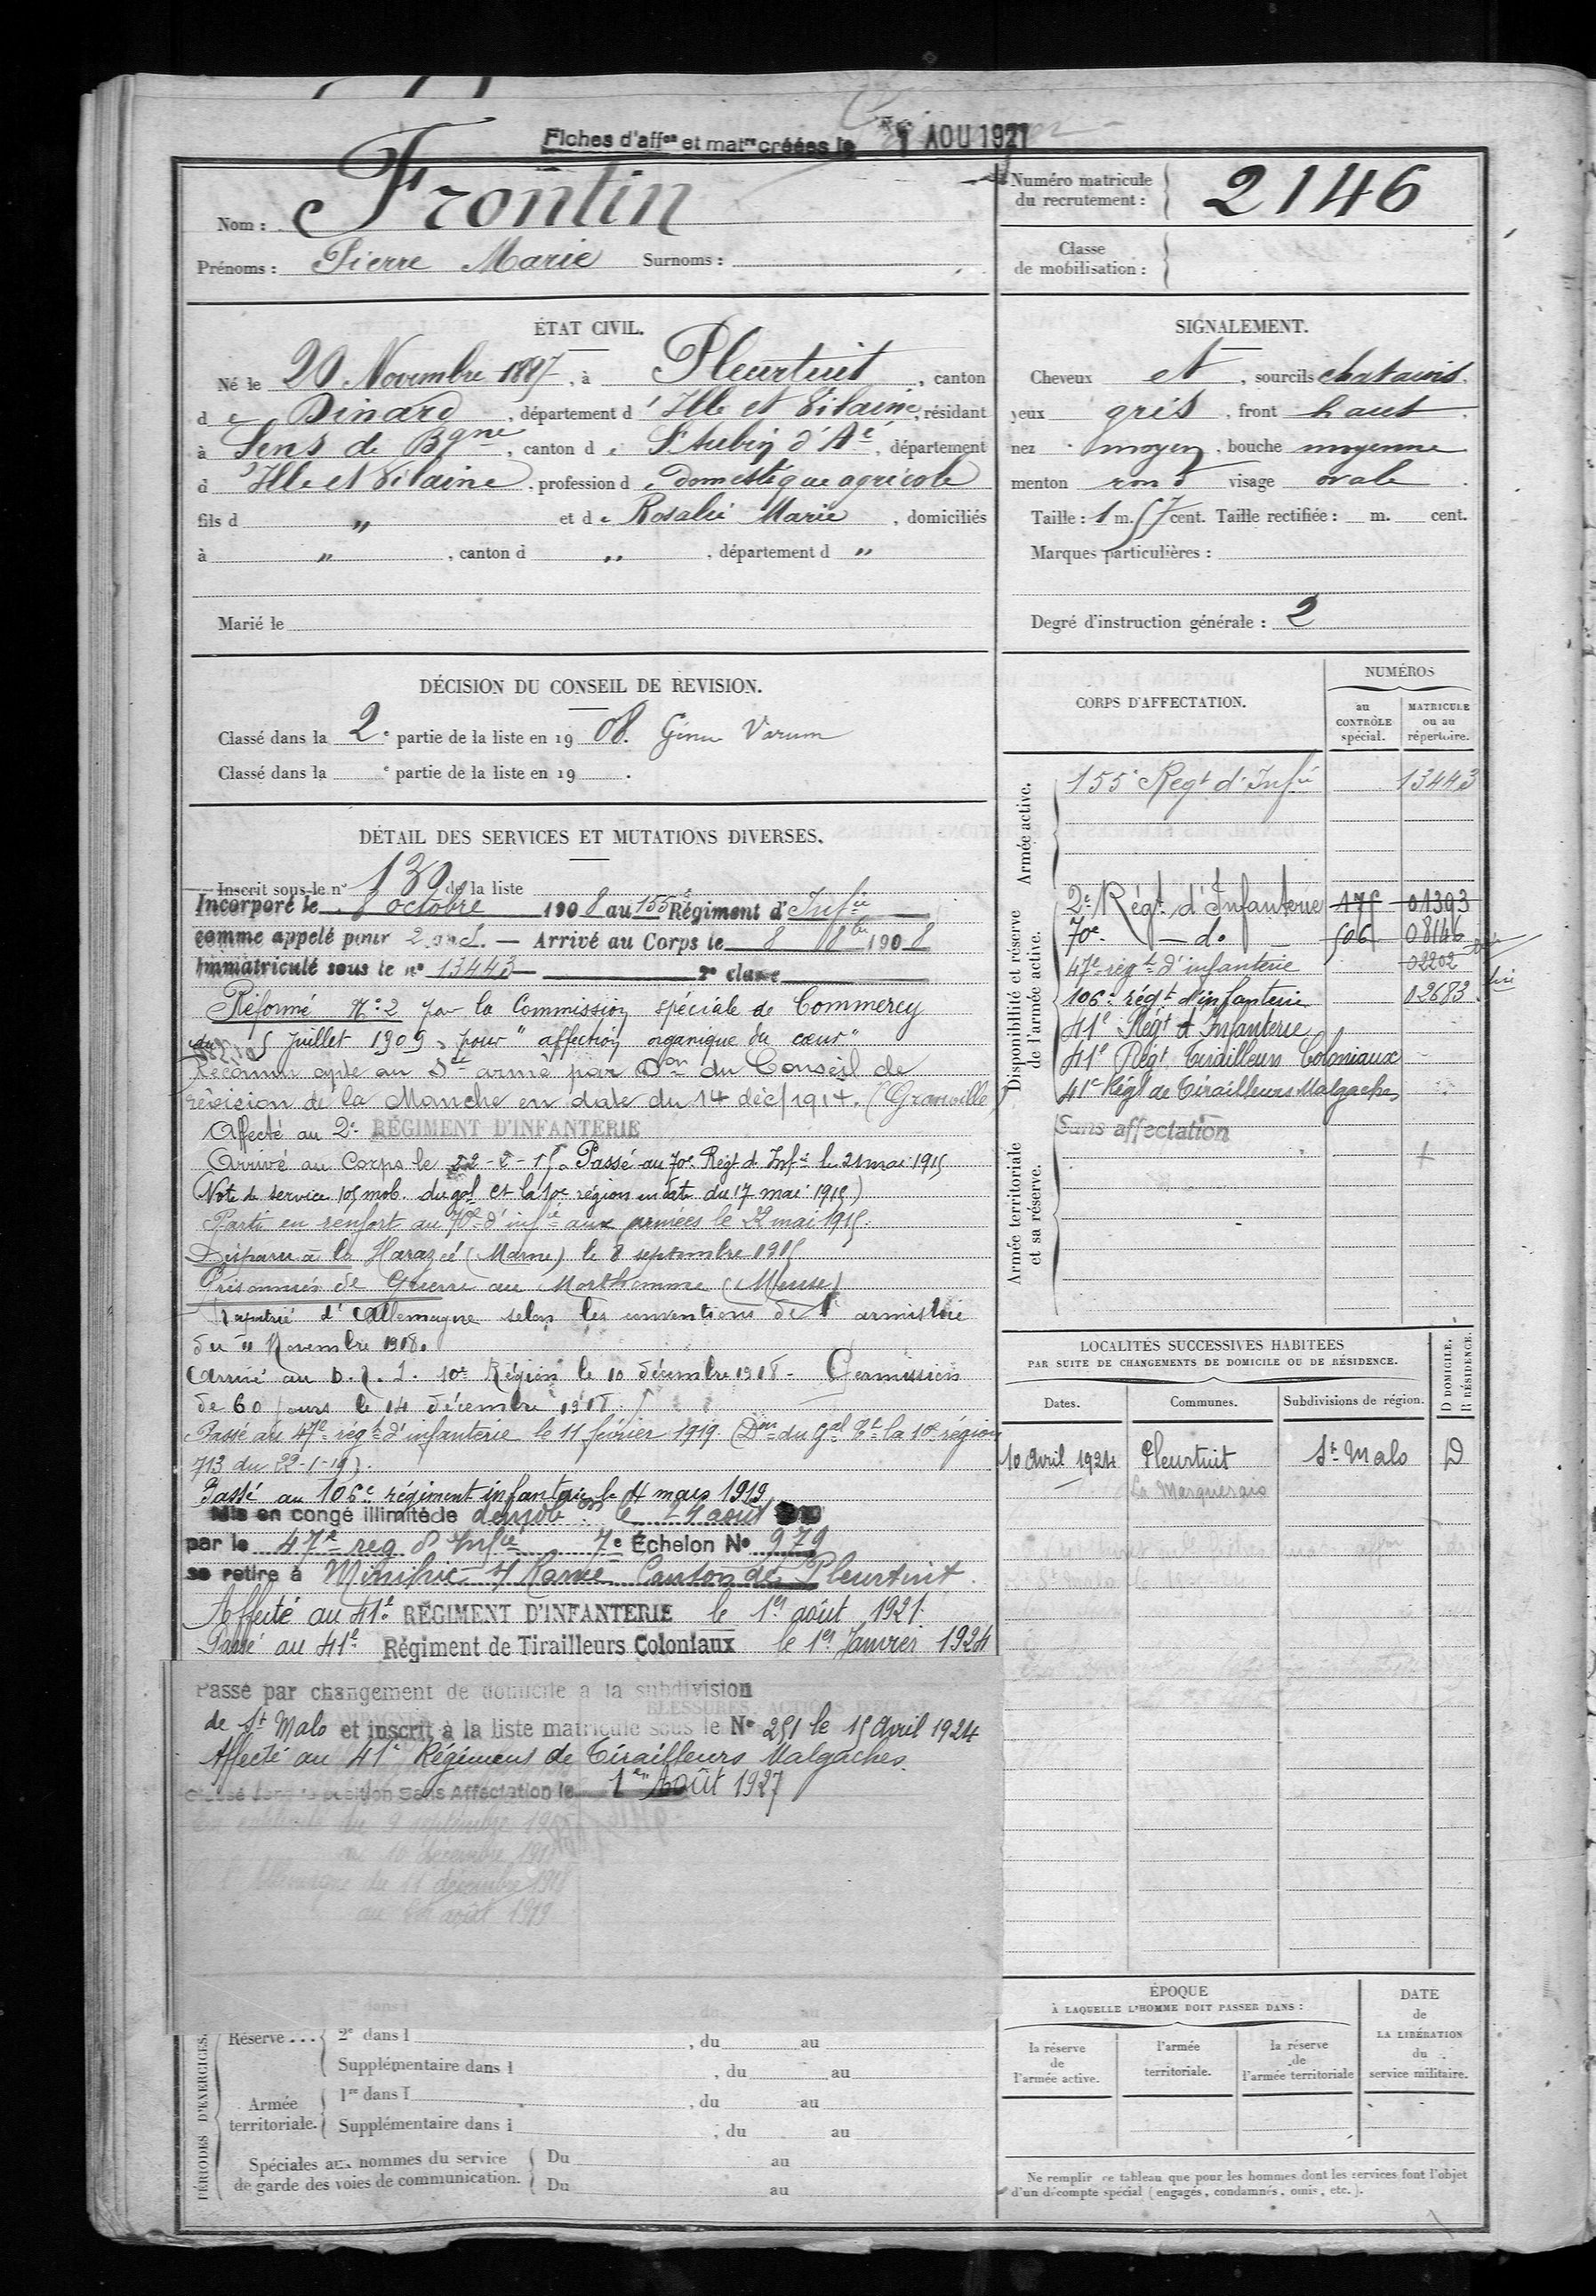 Fiches d'affon et matre créées le 1 AOU 1927
Nom : Frontin
Prénoms : Pierre Marie Surnoms :
Numéro matricule
du recrutement : 2146
Classe
de mobilisation :
ÉTAT CIVIL.
Né le 20 Novembre 1887, à Pleurtuit, canton
de Dinard, département d'Ille et Vilaine, résidant
à Sens de Bgne, canton de St Aubin d'Aé, département
d Ille et Vilaine, profession de domestique agricole
fils d " et de Rosalie Marie, domiciliés
à ", canton d ", département d "
Marié le
SIGNALEMENT.
Cheveux et, sourcils chatains.
yeux gris, front haut.
nez moyen, bouche moyenne
menton rond visage ovale.
Taille : 1 m. 57 cent. Taille rectifiée : m. cent.
Marques particulières :
Degré d'instruction générale : 2
DÉCISION DU CONSEIL DE REVISION.
Classé dans la 2e partie de la liste en 1908. Genu Varum
Classé dans la e partie de la liste en 19 .
DÉTAIL DES SERVICES ET MUTATIONS DIVERSES.
Inscrit sous le n° 130 de la liste
Incorporé le 8 octobre 1908 au 155e Régiment d'Infie
comme appelé pour 2 ans. — Arrivé au Corps le 8 8bre 1908
Immatriculé sous le n° 13443 2e classe
Réformé N° 2 par la Commission spéciale de Commercy
du 5 Juillet 1909, pour "affection organique du cœur"
Reconnu apte au Sce armé par Don du Conseil de
revision de la Manche en date du 14 déc 1914. (Granville)
Affecté au 2e RÉGIMENT D'INFANTERIE
Arrivé au Corps le 22-2-15. Passé au 70e Régt d'Infie le 21 mai 1915
(Note de service 105 mob. du gal Ct la 10e région en date du 17 mai 1915)
Parti en renfort au 70e d'infie aux armées le 22 mai 1915.
Disparu à la Harazée (Marne) le 8 septembre 1915
Prisonnier de Guerre au Morthomme (Meuse)
Rapatrié d'Allemagne selon les conventions de l'armistice
du 11 Novembre 1918.
Arrivé au D. 10e Région le 10 décembre 1918 - Permission
de 60 jours le 14 décembre 1918.
Passé au 47e régt d'infanterie le 11 février 1919. (Don du Gal Ct la 10e région
713 du 22-1-19).
Passé au 106e régiment infanterie le 4 mars 1919
Mis en congé illimité de démobon le 24 août
par le 47e reg d'Infie 7e Échelon N° 979
se retire à Minihic s/ Rance Canton de Pleurtuit
Affecté au 41e RÉGIMENT D'INFANTERIE le 1er août 1921.
Passé au 41e Régiment de Tirailleurs Coloniaux le 1er Janvier 1924
Passé par changement de domicile à la subdivision
de St Malo et inscrit à la liste matricule sous le N° 251 le 15 Avril 1924
Affecté au 41e Régiment de Tirailleurs Malgaches.
Classé dans la position Sans Affectation le 1er Août 1927
du 9 septembre
10 décembre 1918
Allemagne du 11 décembre 1918
au août 1919
PÉRIODES D'EXERCICES.
Réserve... 2e dans l , du au
Supplémentaire dans l , du au
Armée
territoriale. 1re dans l , du au
Supplémentaire dans l , du au
Spéciales aux hommes du service
de garde des voies de communication. Du au
Du au
CORPS D'AFFECTATION.
NUMÉROS
au
CONTRÔLE
spécial.
MATRICULE
ou au
répertoire.
Armée active.
155e Regt d'Infie 13443
Disponibilité et réserve
de l'armée active.
2e Régt d'Infanterie 175 01393
70e — do — 506 08146
47e régt d'infanterie 02202
106e régt d'infanterie 02683
41e Régt d'Infanterie
41e Régt Tirailleurs Coloniaux
41e Régt de Tirailleurs Malgaches
Armée territoriale
et sa réserve.
Sans affectation
LOCALITÉS SUCCESSIVES HABITÉES
PAR SUITE DE CHANGEMENTS DE DOMICILE OU DE RÉSIDENCE.
D DOMICILE.
R RÉSIDENCE.
Dates. Communes. Subdivisions de région.
10 Avril 1924 Pleurtuit St Malo D
ÉPOQUE
À LAQUELLE L'HOMME DOIT PASSER DANS :
la réserve
de
l'armée active.
l'armée
territoriale.
la réserve
de
l'armée territoriale
DATE
de
LA LIBÉRATION
du
service militaire.
Ne remplir ce tableau que pour les hommes dont les services font l'objet
d'un décompte spécial (engagés, condamnés, omis, etc.).